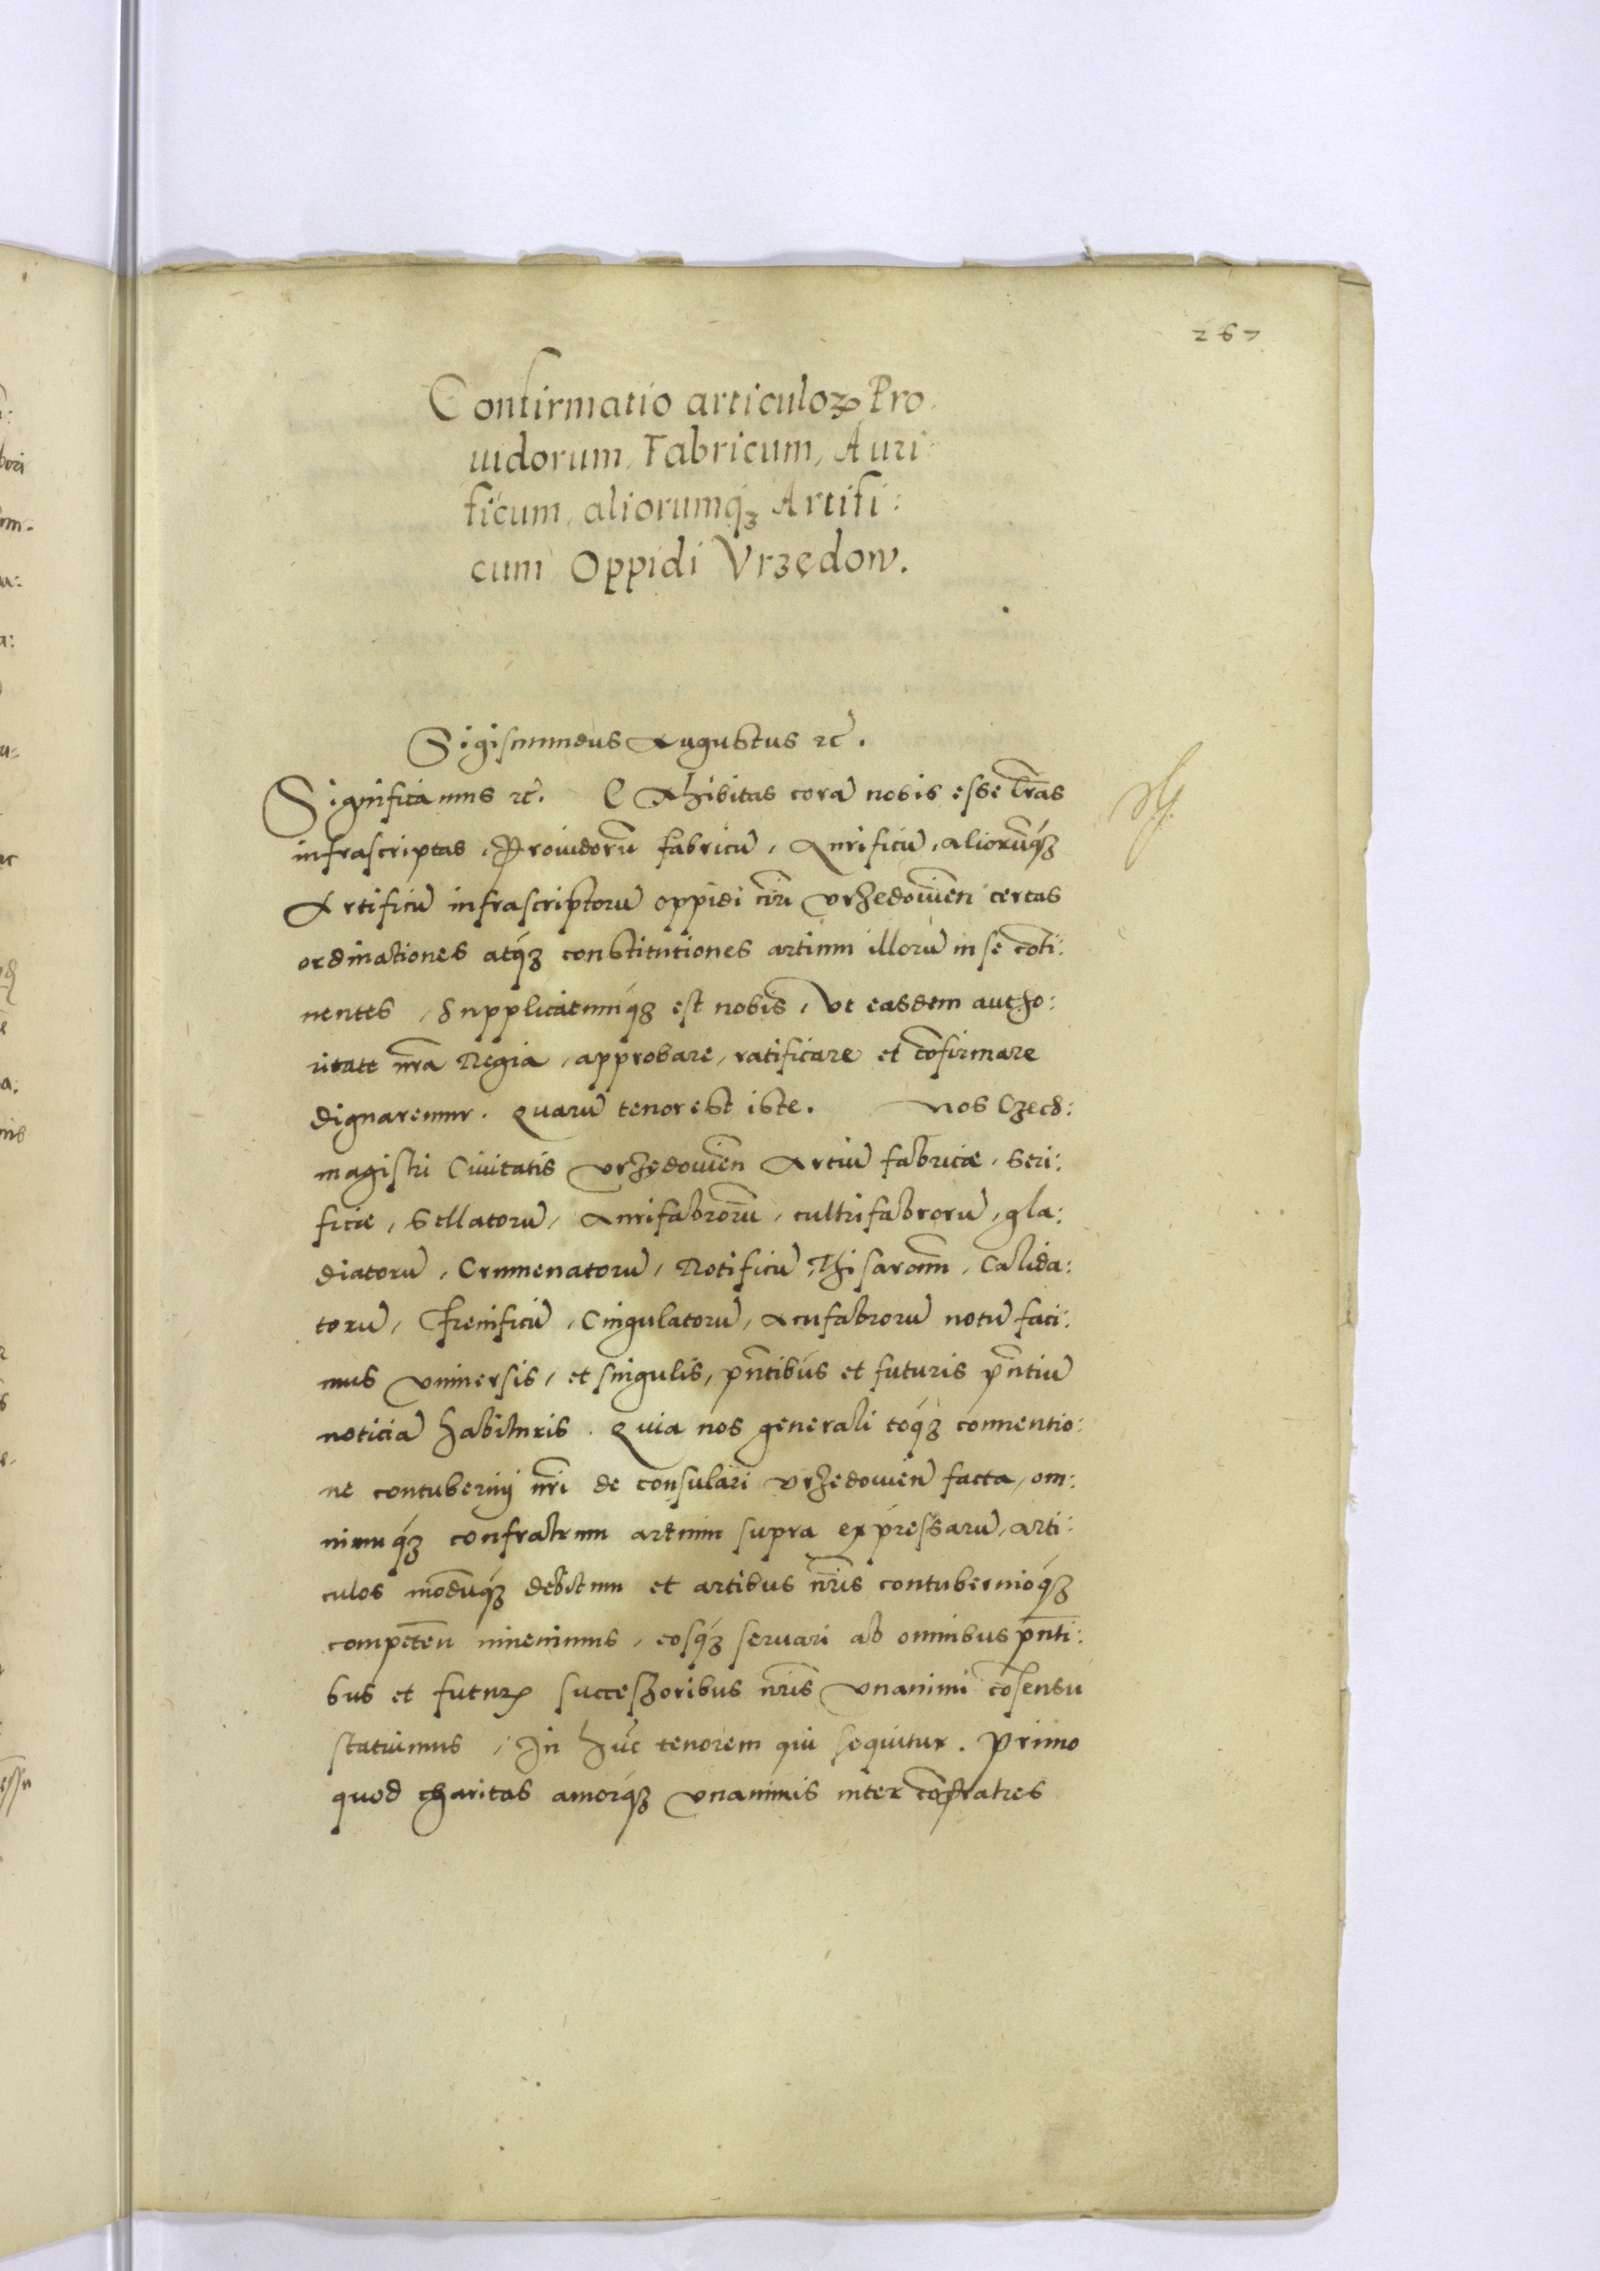 267
Confirmatio articuloꝝ Pro
uidorum, Fabricum, Auri
ficum, aliorumqꝫ Artifi:
cum Oppidi Vrzędow.
Sigismundus Augustus ꝛc̃.
Significamus ꝛc̃. Exhibitas corã nobis esse l̃ras
infrascriptas, Prouidorũ fabricũ, Aurificũ, aliorũqꝫ
Artificũ infrascriptorũ oppidi n̄ri Vrzedowien̄ certas
ordinationes atqꝫ constitutiones artium illorũ in se cōti:
nentes, Supplicatumqꝫ est nobis, Vt easdem autho:
ritate n̄ra Regia, approbare, ratificare et cōfirmare
dignaremur. Quarũ tenor est iste. Nos Czech:
magistri Ciuitatis Vrzędowien̄ Artiũ fabricæ, Seri:
ficiæ, Sellatorũ, Aurifabrorũ, cultrifabrorũ, gla:
diatorũ, Crumenatorũ, Rotificũ, Thisaronũ, Calida:
torũ, Frenificũ, Cingulatorũ, Acufabrorũ notũ faci:
mus Vniuersis, et singulis, p̄ntibus et futuris p̄ntiũ
noticiã habituris. Quia nos generali totqꝫ conuentio:
ne contubernij n̄ri de consulari Vrzedowien̄ facta, om:
niumqꝫ confratrum artium supra expressarũ, arti:
culos modũqꝫ debitum et artibus n̄ris contubernioqꝫ
competen̄ inuenimus, eosqꝫ seruari ab omnibus p̄nti:
bus et futurꝭ successoribus n̄ris Vnanimi cōsensu
statuimus, In hũc tenorem qui sequitur. Primo
quod charitas amorqꝫ Vnanimis inter cōfratres